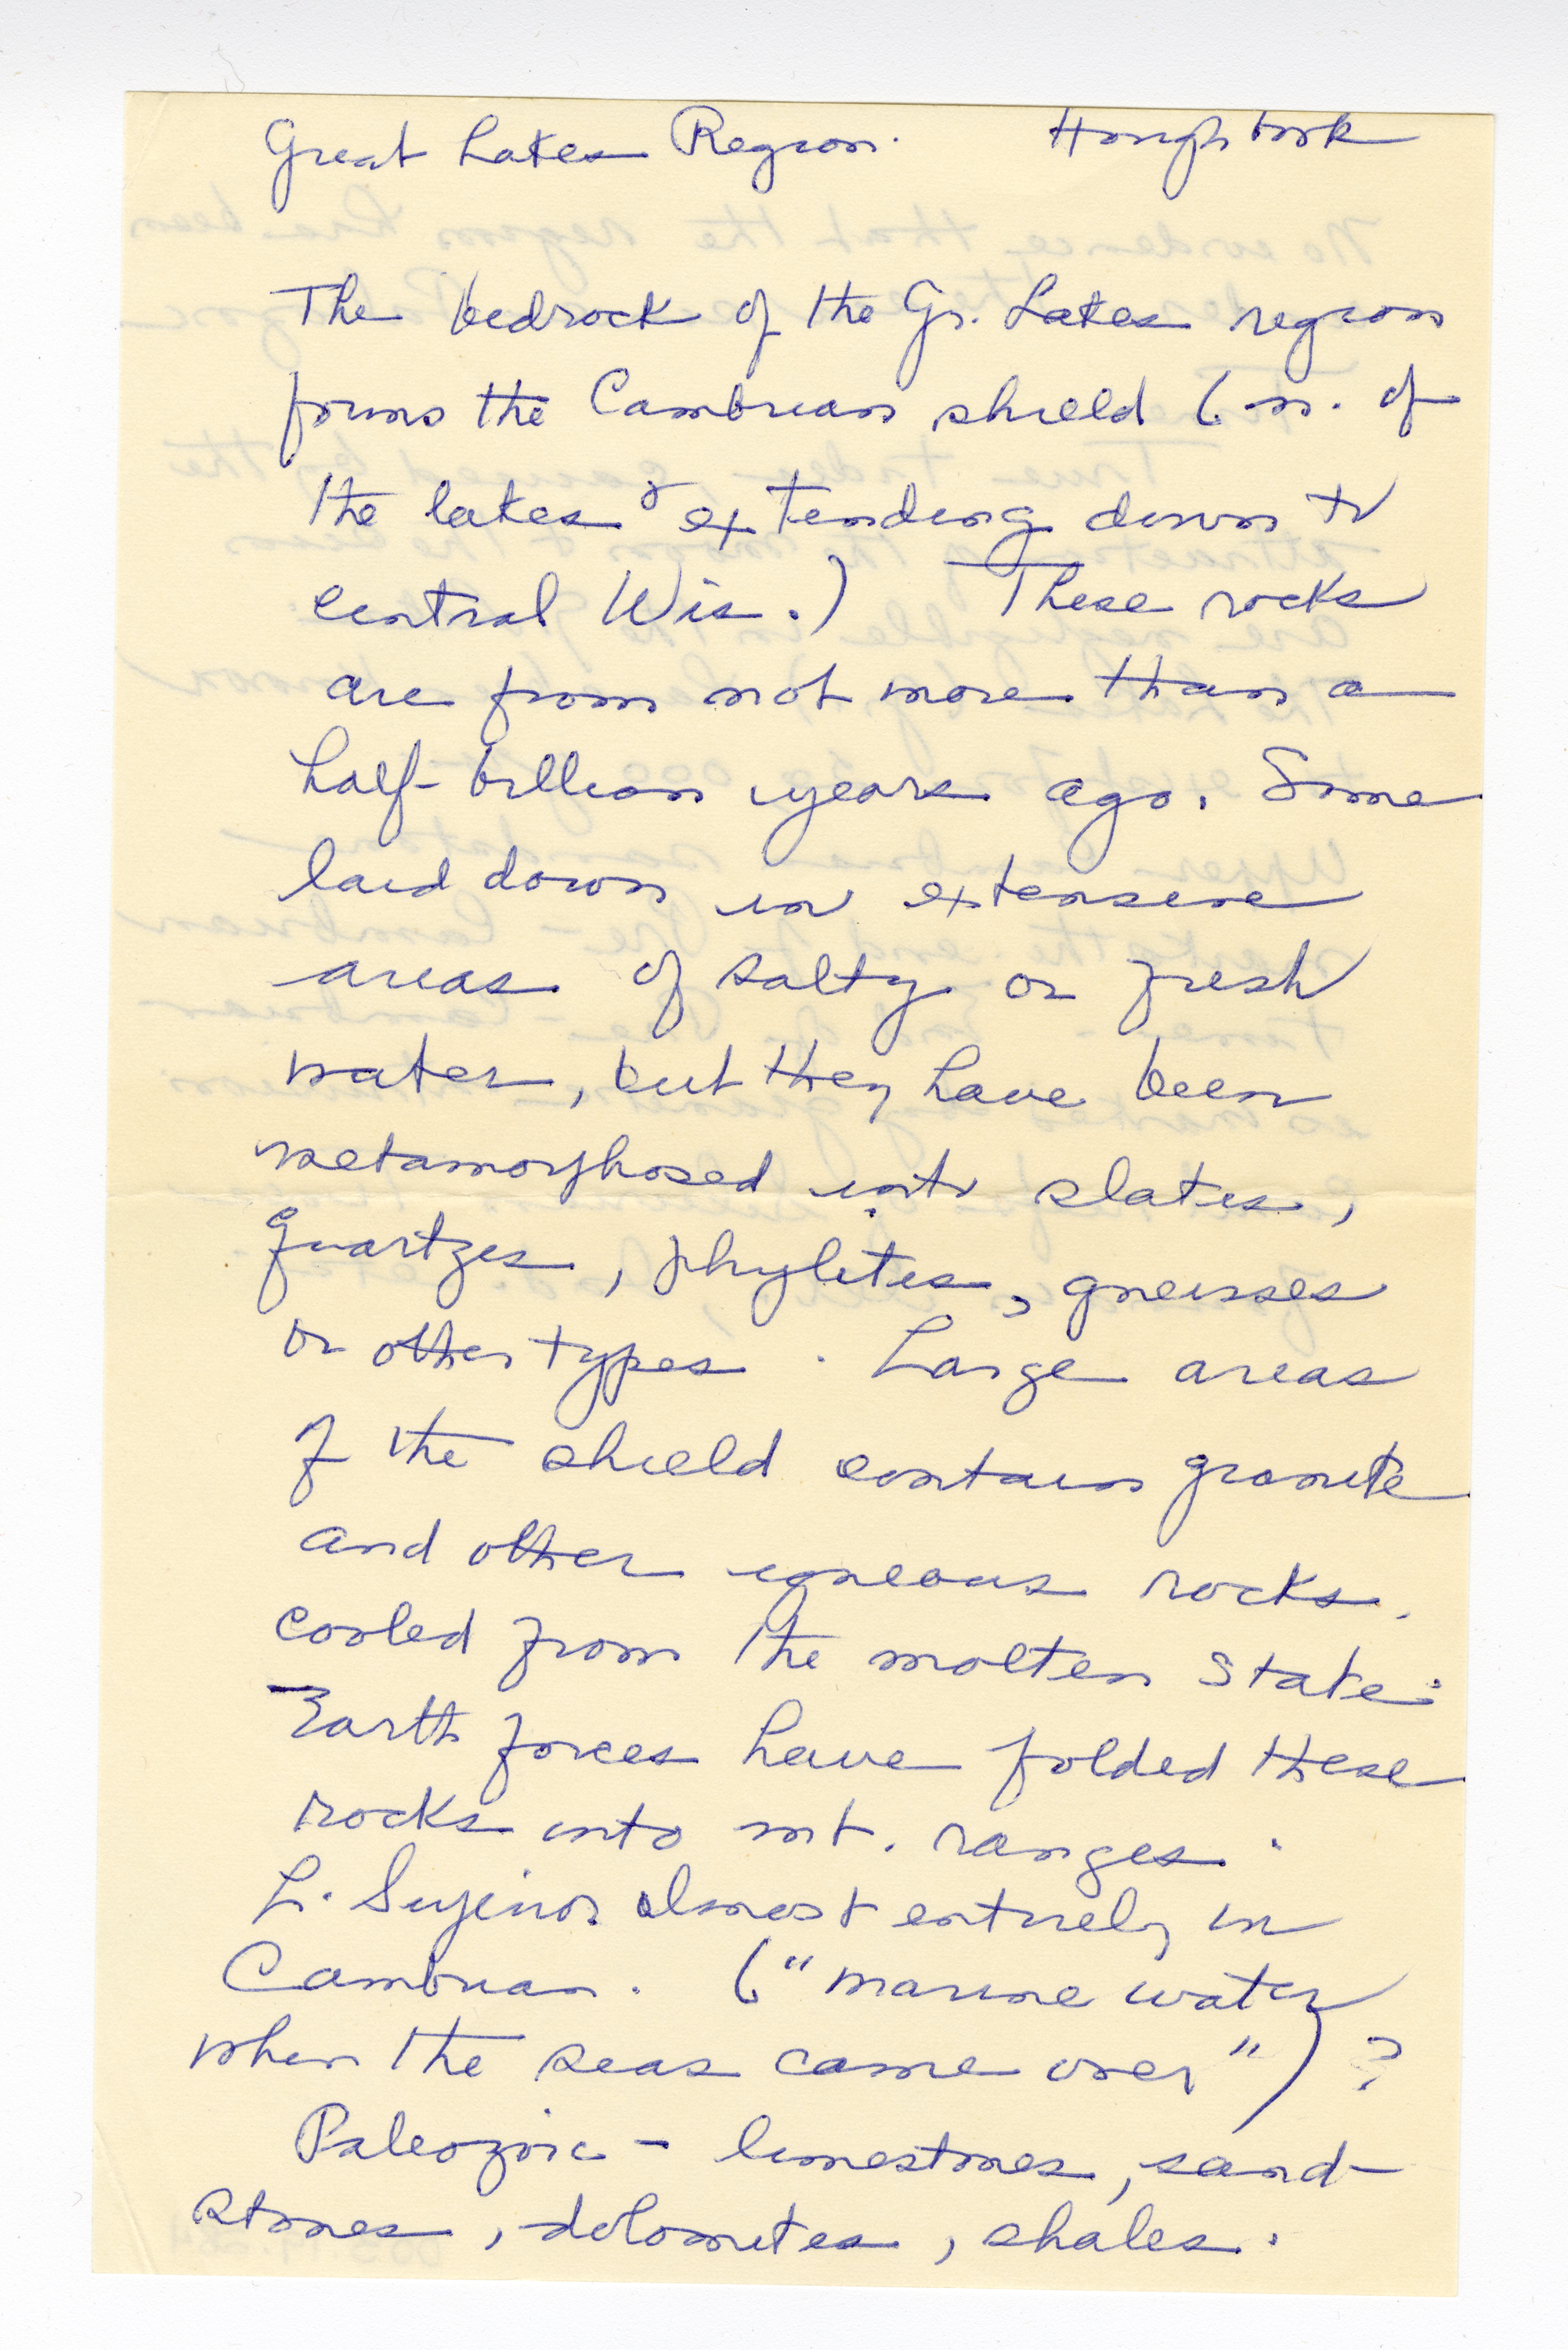 Great Lakes Region. Hough book
The bedrock of the Gr. Lakes region
forms the Cambrian shield (n. of
the lakes & extending down to
central Wis.) These rocks
are from not more than a
half-billion years ago. Some
laid down in extensive
areas of salty or fresh
water, but they have been
metamorphosed into slates,
quartzes, phylites, gneisses
or other types. Large areas
of the shield contain granite
and other igneous rocks.
cooled from the molten state.
Earth forces have folded these
rocks into mt. ranges.
L. Superior almost entirely in
Cambrian. ("marine water
when the seas came over") ?
Paleozoic - limestones, sand-
stones, dolomites, shales.